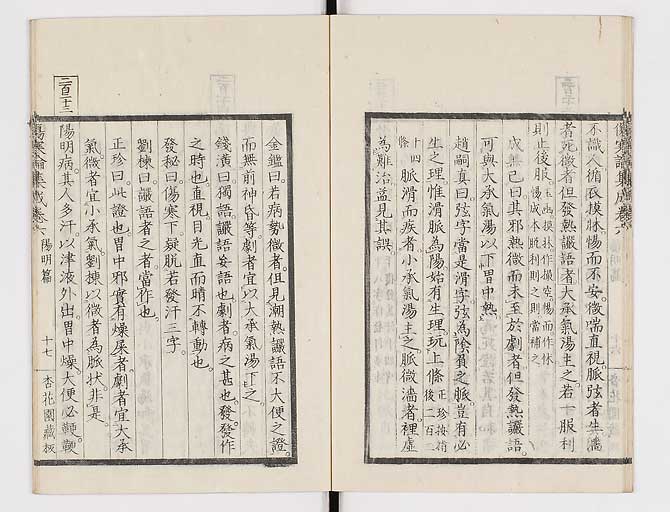 不識人循衣摸牀惕而不安微喘直視脈弦者生濇
者死微者但發熱讝語者大承氣湯主之若一服利
則止後服
成無己曰其邪熱微而未至於劇者但發熱讝語
可與大承氣湯以下胃中熱
趙嗣真曰弦字當是滑字弦為陰負之脈豈有必
生之理惟滑脈為陽始有生理玩上條正珍按指後二百二
十四條脈滑而疾者小承氣湯主之脈微濇者裡虛
為難治益見其誤
金鑑曰若病勢微者但見潮熱讝語不大便之證
而無前神昏等劇者宜以大承氣湯下之
錢潢曰獨語讝語妄語也劇者病之甚也發發作
之時也直視目光直而睛不轉動也
發秘曰傷寒下疑脫若發汗三字
劉棟曰讝語者之者當作也
正珍曰此證也胃中邪實有燥屎者劇者宜大承
氣微者宜小承氣劉棟以微者為脈狀非是
二百十三
陽明病其人多汗以津液外出胃中燥大便必鞕鞕
傷寒論集成卷六 陽明篇 十七 杏花園藏板